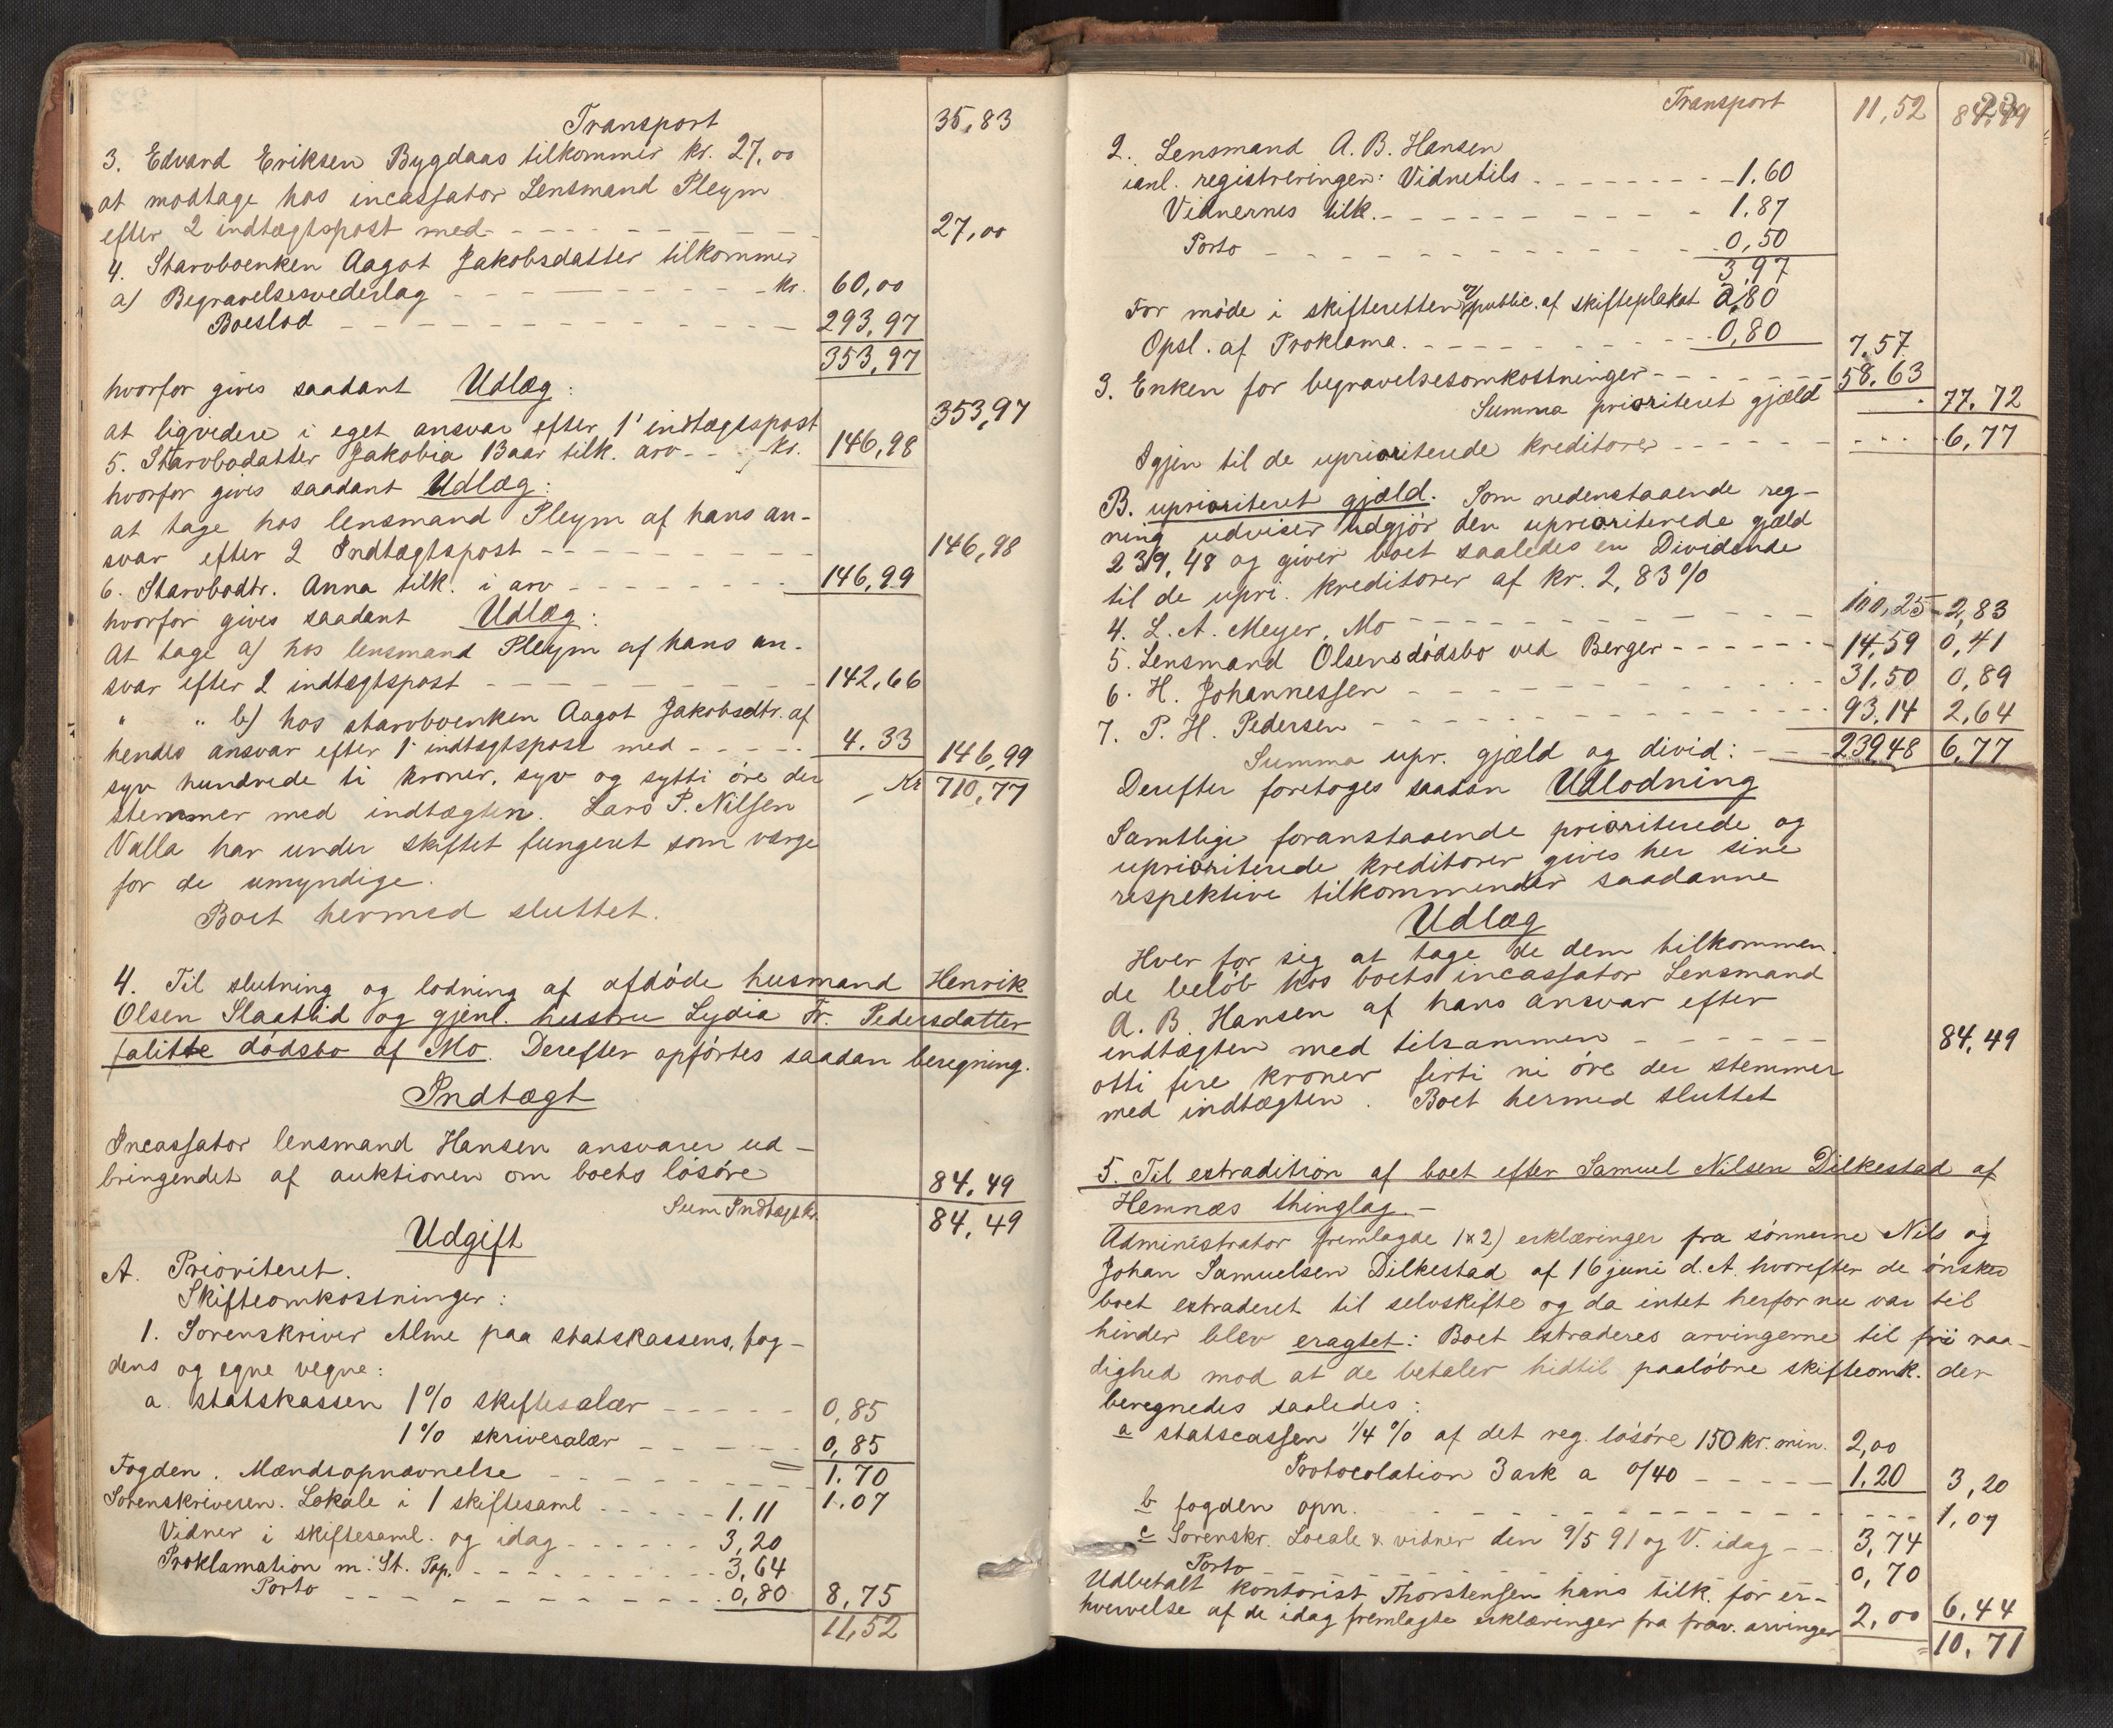 Transport 35,83
3. Edvard Eriksen Bygdaas tilkommer kr. 27,00
at modtage hos incassator Lensmand Pleym
efter 2 indtægtspost med - - - 27,00
4. Stervboenken Aagot Jakobsdatter tilkommer
a) Begravelsesvederlag - - - kr. 60,00
Boeslod - - - 293,97
353,97
hvorfor gives saadant Udlæg:
at liqvidere i eget ansvar efter 1' indtægtspost 353,97
5. Stervbodatter Jakobia Baar tilk. arv - - kr. 146,98
hvorfor gives saadant Udlæg:
at tage hos lensmand Pleym af hans an-
svar efter 2 Indtægtspost - - - 146,98
6. Stervbodtr. Anna tilk. i arv - - - 146,99
hvorfor gives saadant Udlæg:
At tage a) hos lensmand Pleym af hans an-
svar efter 2 indtægtspost - - - 142,66
" " b) hos stervboenken Aagot Jakobsdtr. af
hendes ansvar efter 1' indtægtspost med - - - 4.33 146,99
syv hundrede ti kroner, syv og sytti öre der - Kr 710,77
stemmer med indtægten. Lars P. Nilsen
Valla har under skiftet fungeret som værge
for de umyndige.
Boet hermed sluttet.
4. Til slutning og lodning af afdöde husmand Henrik
Olsen Slaatlid og gjenl. hustru Lydia Fr. Pedersdatter
falitte dödsbo af Mo. Derefter opförtes saadan beregning.
Indtægt
Incassator lensmand Hansen ansvarer ud-
bringendet af auktionen om boets lösöre 84,49
Sum Indtægt kr. 84,49
Udgift
A. Prioriteret.
Skifteomkostninger:
1. Sorenskriver Alme paa statskassens, fog-
dens og egne vegne:
a. statskassen 1% skiftesalær - - - 0,85
1% skrivesalær - - - 0,85
1.70
Fogden. Mændsopnævnelse - - - 1.07
Sorenskriveren. Lokale i 1 skiftesaml - - - 1.11
Vidner i skiftesaml. og idag - - - 3,20
Proklamation m: St. Pap. - - - 3,64
Porto - - - 0,80 8,75
11,52
Transport 11,52 84,49
2. Lensmand A. B. Hansen
anl. registreringen: Vidnetils - - - 1.60
Vidnernes tilk. - - - 1.87
Porto - - - 0,50
3,97
For möde i skifteretten public. af skifteplakat 2,80
Opsl. af Proklama. - - - 0,80 7,57
3. Enken for begravelsesomkostninger - - - 58,63
Summa prioriteret gjæld - 77.72
Igjen til de uprioriterede kreditorer - - - 6,77
B. uprioriteret gjæld. Som nedenstaaende reg-
ning udviser udgjör den uprioriterede gjæld
239,48 og giver boet saaledes en Dividende
til de upri. kreditorer af kr. 2,83%
4. L. A. Meyer, Mo - - - 100,25 - 2,83
5. Lensmand Olsens dödsbo ved Berger - - - 14,59 0,41
6. H. Johannessen - - - 31,50 0,89
7. P. H. Pedersen - - - 93,14 2,64
Summa upr. gjæld og divid: - - 239,48 6,77
Derefter foretoges saadan Udlodning
Samtlige foranstaaende prioriterede og
uprioriterede kreditorer gives her sine
respektive tilkommender saadanne
Udlæg
Hver for sig at tage de dem tilkommen-
de belöb hos boets incassator Lensmand
A. B. Hansen af hans ansvar efter
indtægten med tilsammen - - - 84,49
otti fire kroner firti ni öre der stemmer
med indtægten. Boet hermed sluttet
5. Til extradition af boet efter Samuel Nilsen Dilkestad af
Hemnæs thinglag -
Administrator fremlagde 1 x 2) erklæringer fra sönnerne Nils og
Johan Samuelsen Dilkestad af 16 juni d.A. hvorefter de önsker
boet extraderet til selvskifte og da intet herfor nu var til
hinder blev eragtet: Boet extraderes arvingerne til frii raa-
dighed mod at de betaler hidtil paalöbne skifteomk. der
beregnedes saaledes:
a statscassen 1/4 % af det reg. lösöre 150 kr. min. 2,00
Protocolation 3 ark a 0/40 - - - 1.20 3,20
b fogden opn. - - - 1,07
c Sorenskr. Locale & vidner den 9/5 91 og V. idag - - 3,74
Porto - - - 0,70
Udbetalt kontorist Thorstensen hans tilk. for er-
hvervelse af de idag fremlagte erklæringer fra frav. arvinger 2,00 6,44
10,71